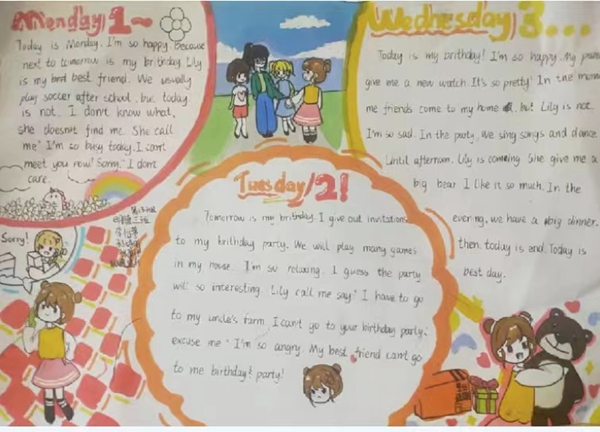 Monday 1~
Today is Monday. I'm so happy Because
next to tomorrow is my birthday. Lily
is my best best friend. We usually
play soccer after school. but today
is not. I don't know what,
she doesnot find me. She call
me: I'm so busy today. I can't
meet you now! Sorry." I don't
care.
Sorry!
Tuesday/2!
Tomorrow is my birthday. I give out invitations
to my birthday party. We will play many games
in my house. I'm so relaxing. I guess the party
will so interesting. Lily call me say: I have to go
to my uncle's farm. I can't go to your birthday party.
excuse me" I'm so angry. My best friend can't go
to me birthday party!
Wednesday 3...
Today is my brithday! I'm so happy. My
give me a new watch. It's so pretty! In the
me friends come to my home. but Lily is not.
I'm so sad. In the party, we sing songs and dance.
Until afternoon. Lily is comeing. She give me a
big bear. I like it so much. In the
evering, we have a big dinner.
then. today is end. Today is
best day.